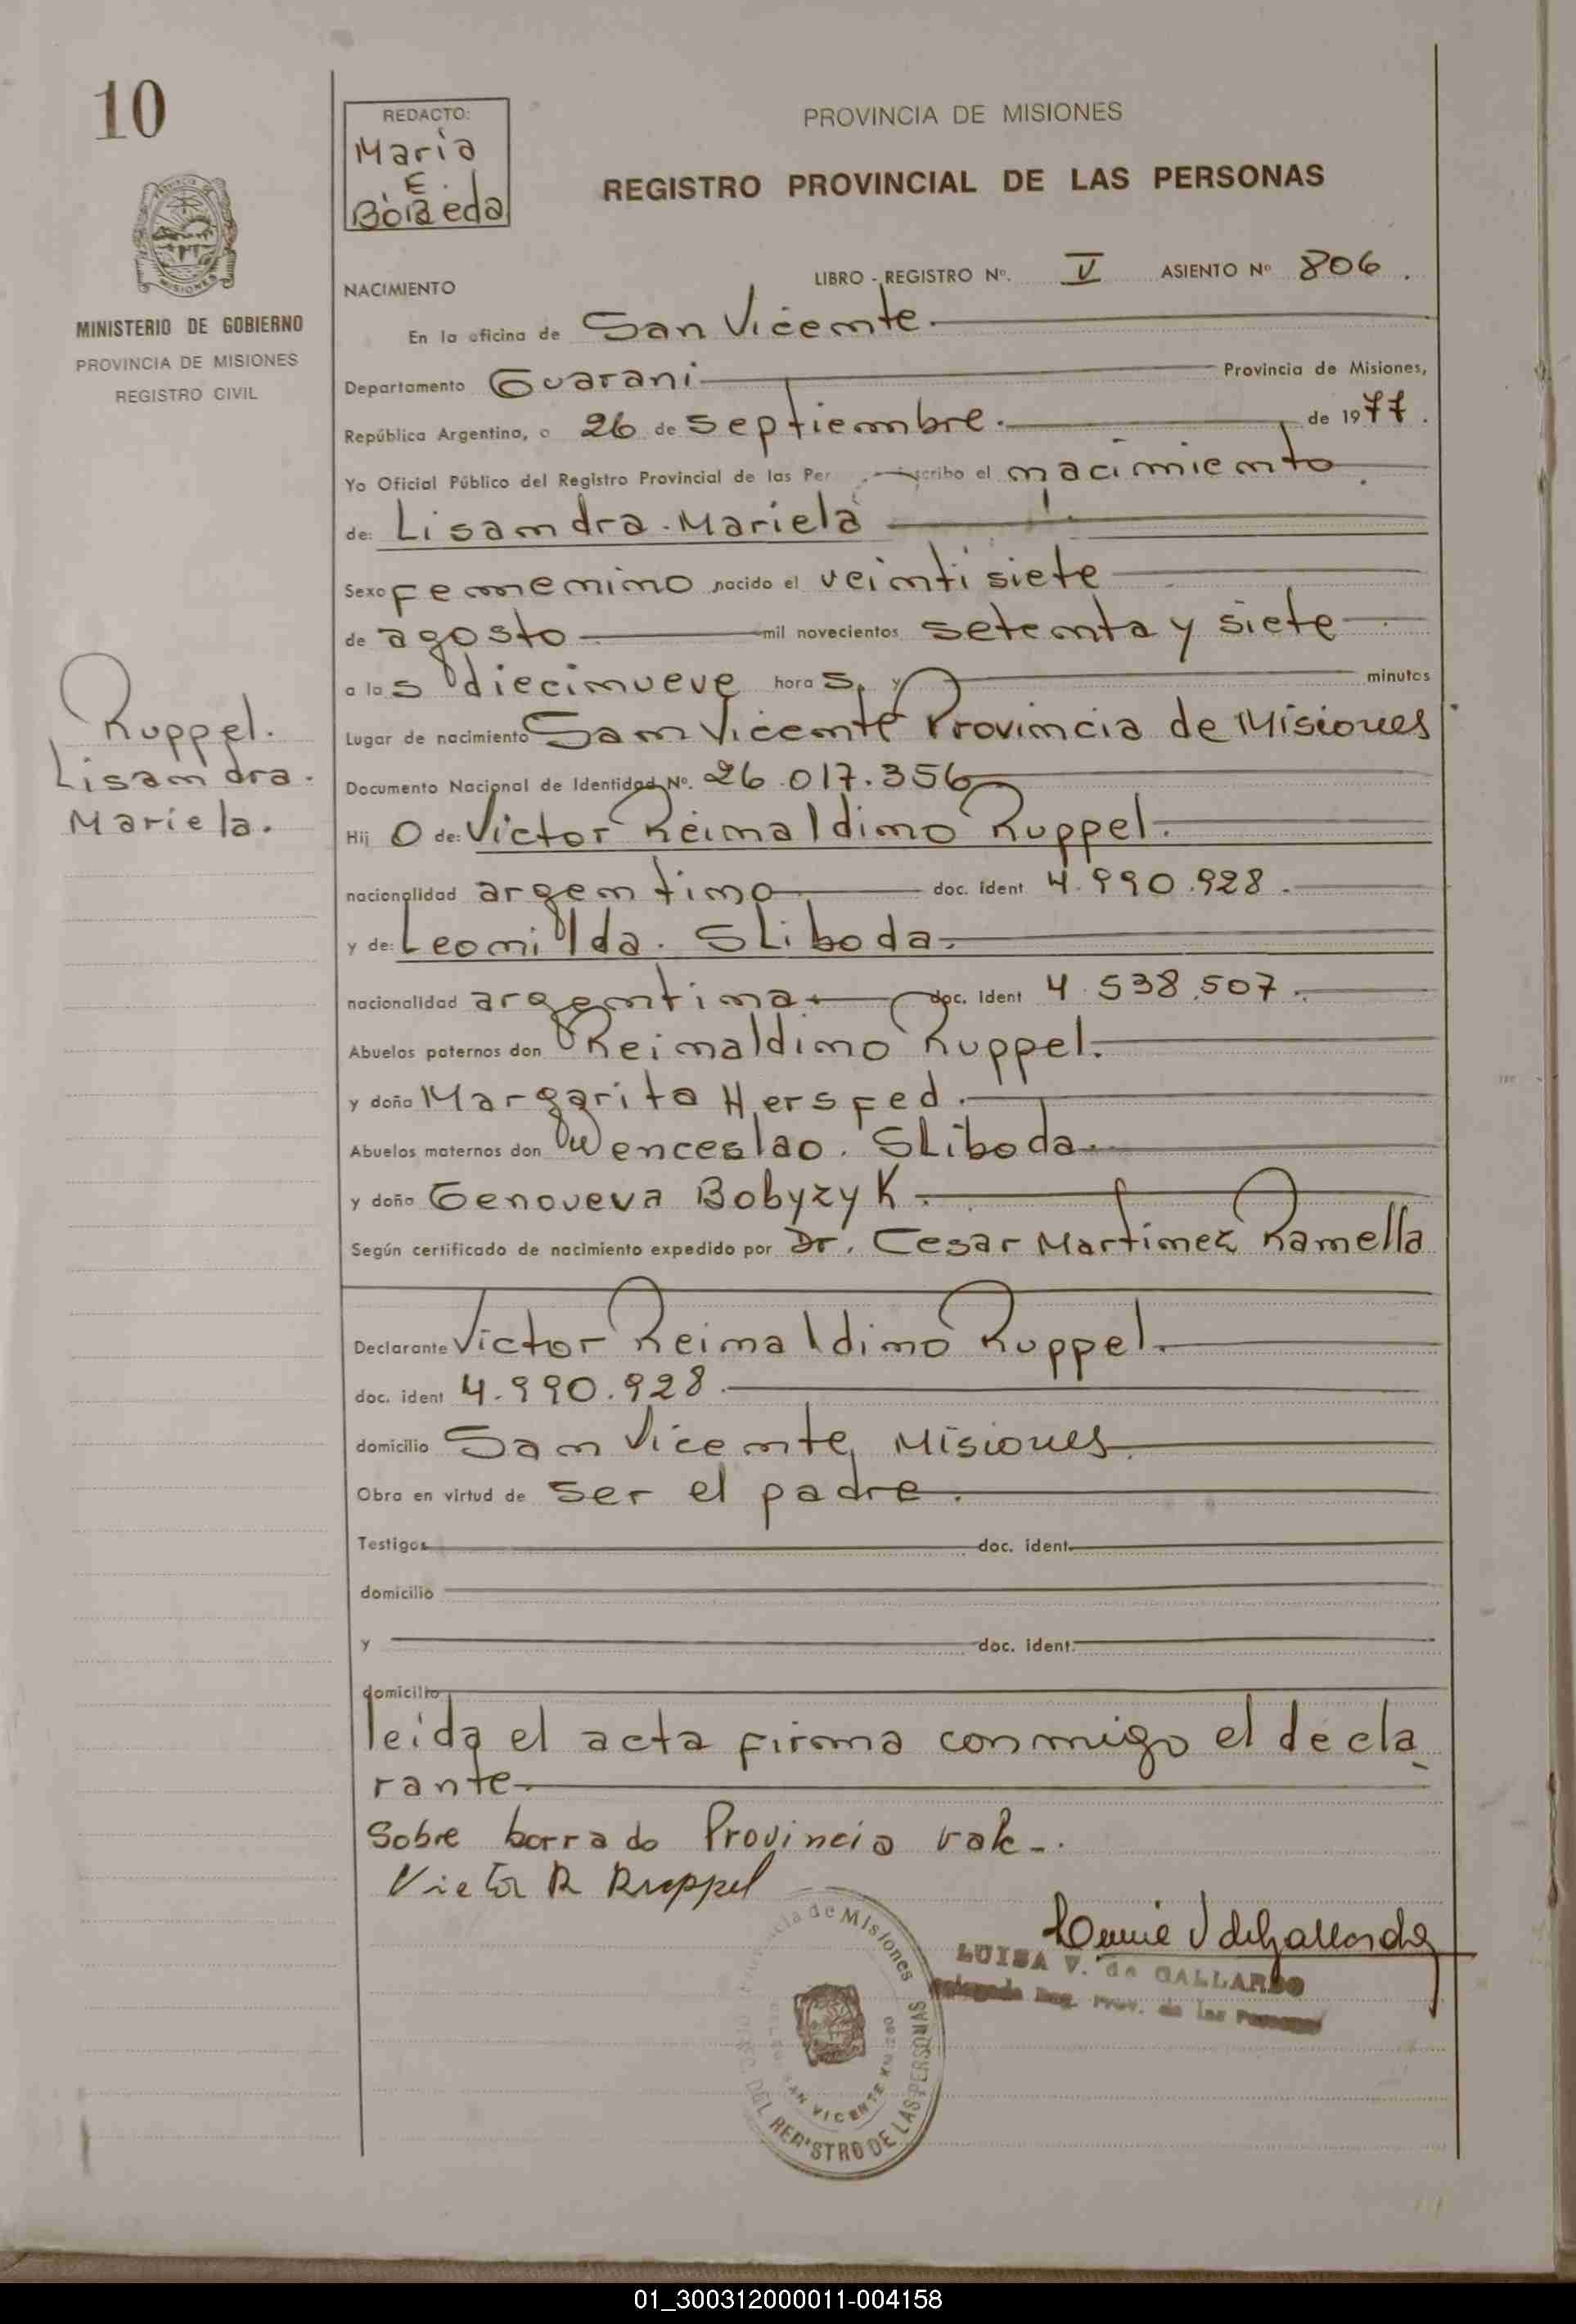 10
REDACTO:
Maria
E.
PROVINCIA DE MISIONES
REGISTRO PROVINCIAL DE LAS PERSONAS
MINISTERIO DE GOBIERNO
PROVINCIA DE MISIONES
REGISTRO CIVIL
NACIMIENTO LIBRO - REGISTRO Nº. V ASIENTO Nº 806.
En la oficina de San Vicente.
Departamento Guarani Provincia de Misiones,
República Argentina, a 26 de septiembre. de 1977.
Yo Oficial Público del Registro Provincial de las Per scribo el nacimiento
de: Lisandra. Mariela
Sexo femenino nacido el veintisiete
de agosto mil novecientos setenta y siete
a las diecinueve horas, y minutos
Lugar de nacimiento San Vicente Provincia de Misiones
Documento Nacional de Identidad Nº. 26.017.356
Hijo de: Victor Reinaldino Ruppel.
nacionalidad argentino doc. ident 4.990.928.
y de: Leonilda. Sliboda.
nacionalidad argentina. doc. ident 4.538.507.
Abuelos paternos don Reinaldino Ruppel.
y doña Margarita Hersfed.
Abuelos maternos don Wenceslao. Sliboda.
y doña Genoveva Bobyzyk.
Según certificado de nacimiento expedido por Dr. Cesar Martinez Ramella
Ruppel.
Lisandra.
Mariela.
Declarante Victor Reinaldino Ruppel.
doc. ident 4.990.928.
domicilio San Vicente, Misiones.
Obra en virtud de ser el padre.
Testigos doc. ident.
domicilio
y doc. ident.
domicilio
leida el acta firma conmigo el decla
rante.
Sobre borrado Provincia vale-.
Victor R Ruppel
LUISA V. de GALLARDO
Delegada Reg. Prov. de las Personas
Provincia de Misiones
SAN VICENTE KM 280
DEL REGISTRO DE LAS PERSONAS
01_300312000011-004158